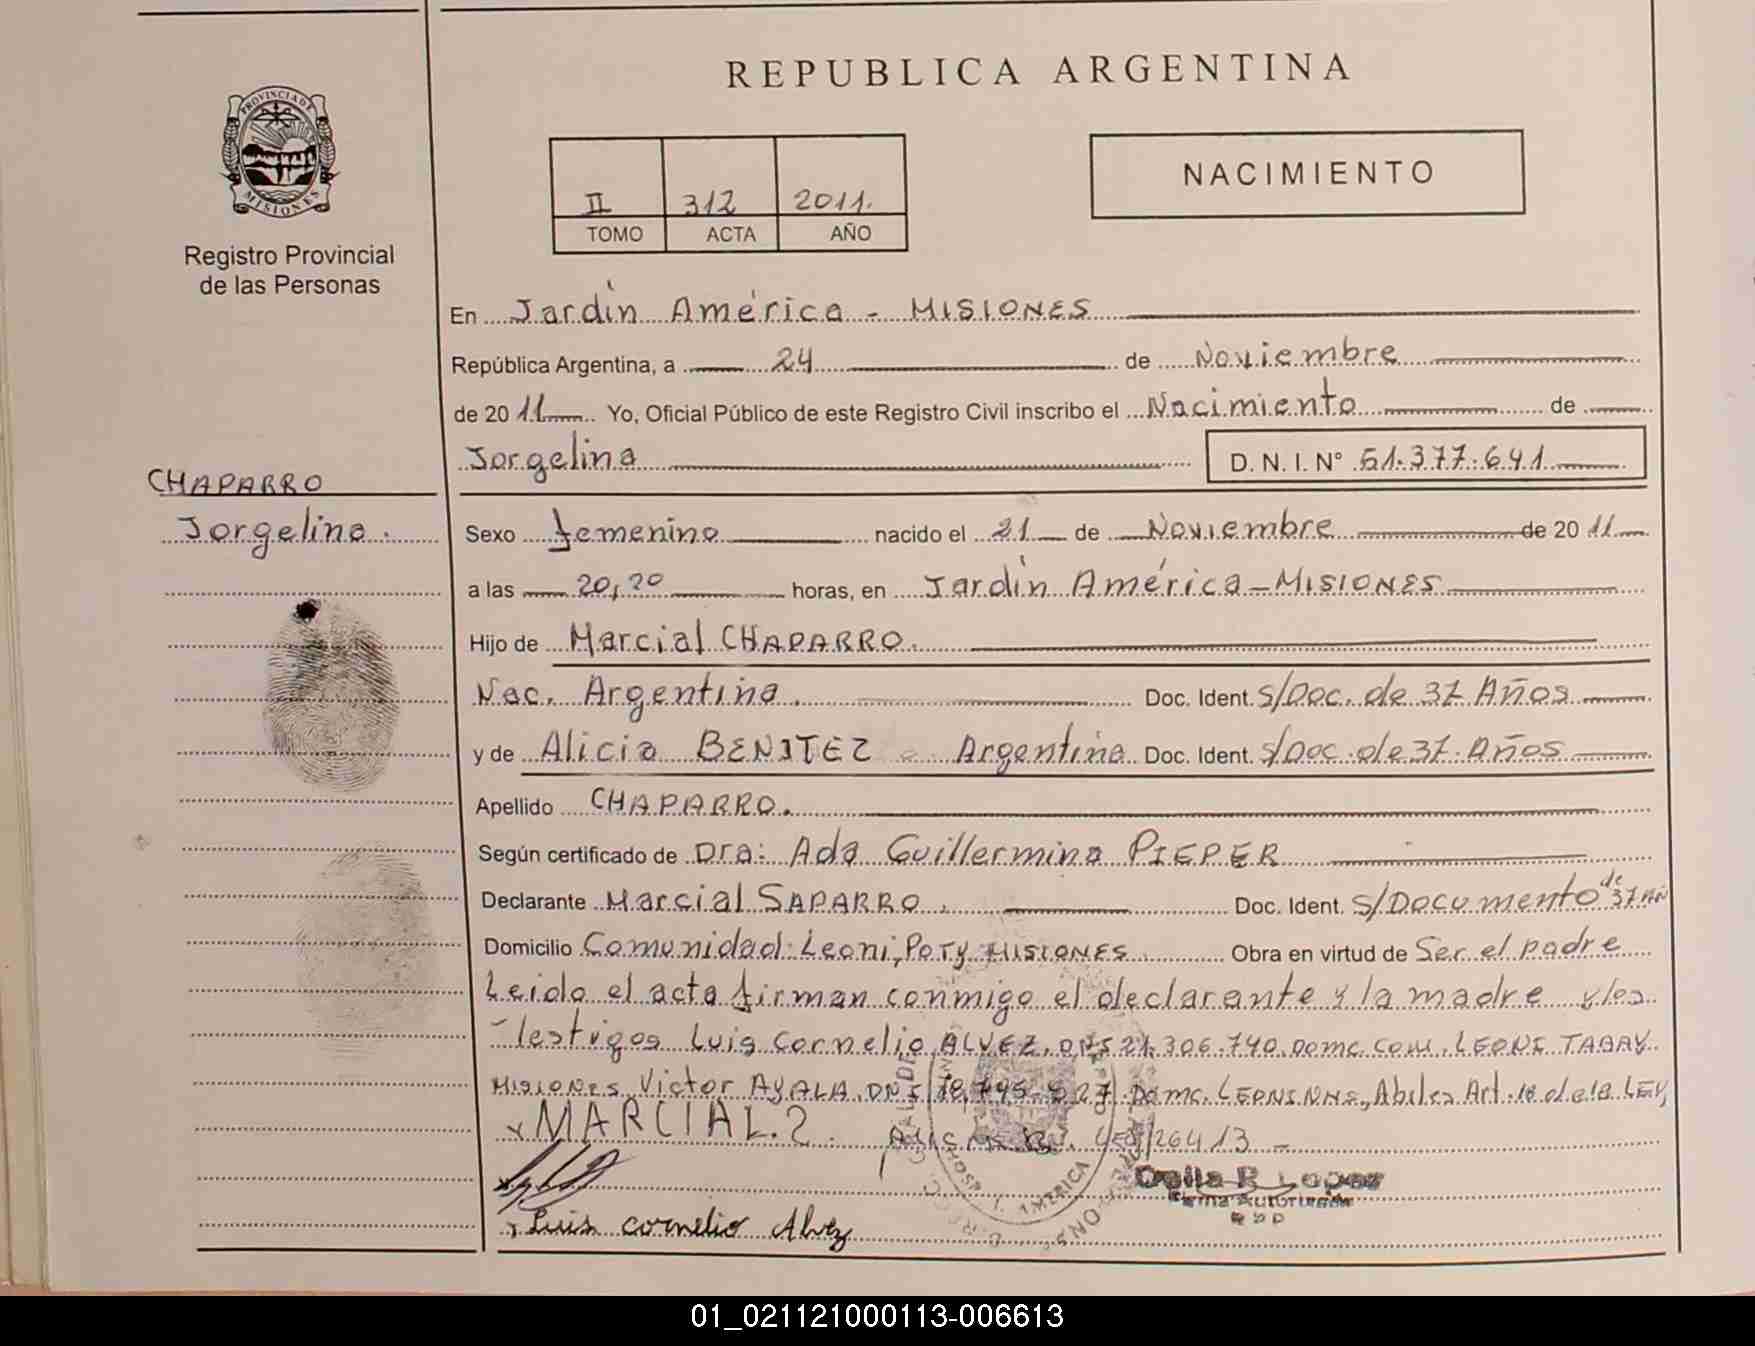 REPUBLICA ARGENTINA
PROVINCIA DE
MISIONES
Registro Provincial
de las Personas
II 312 2011.
TOMO ACTA AÑO
NACIMIENTO
En Jardín América - MISIONES
República Argentina, a 24 de Noviembre
de 2011 Yo, Oficial Público de este Registro Civil inscribo el Nacimiento de
Jorgelina D. N. I. N° 51.377.641
CHAPARRO
Jorgelina.
Sexo femenino nacido el 21 de Noviembre de 2011
a las 20,20 horas, en Jardín América - MISIONES
Hijo de Marcial CHAPARRO.
Nac. Argentina. Doc. Ident. S/Doc. de 37 Años
y de Alicia BENITEZ Argentina Doc. Ident. S/Doc. de 37. Años
Apellido CHAPARRO.
Según certificado de Dra: Ada Guillermina PIEPER
Declarante Marcial SAPARRO. Doc. Ident. S/Documento de 37 Añ
Domicilio Comunidad Leoni, Poty MISIONES Obra en virtud de Ser el padre
Leido el acta firman conmigo el declarante y la madre y los
testigos Luis Cornelio ALVEZ, DNI 21.306.740. Domc. Com. LEONI TABAY
MISIONES, Victor AYALA, DNI Domc. LEONI Art. 18 de la LEY,
x MARCIAL.2. 26413 -
Delia R. Lopez
Firma Autorizada
RPP
HOSP. J. AMERICA
Luis cornelio Alvez
01_021121000113-006613